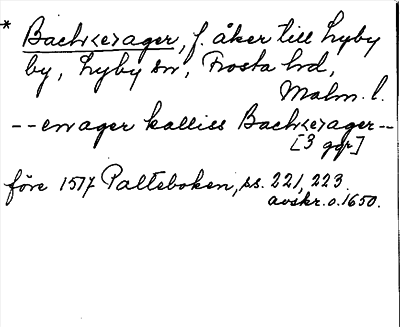 * Bachr<e>ager, f. åker till Hyby
by, Hyby sn, Frosta hd,
Malm. l.
-- en ager kalliss Bachr<e>ager --
[3 ggr]
före 1517 Palteboken, ss. 221, 223.
avskr. o. 1650.